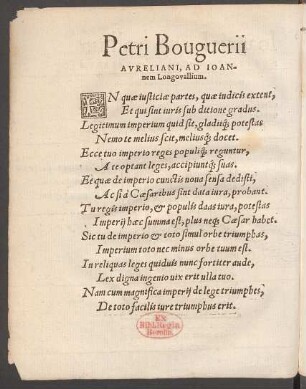 Petri Bouguerii
AVRELIANI, AD IOAN-
nem Longovallium.
EN quæ iusticiæ partes, quæ iudicis extent,
Et qui sint iuris sub ditione gradus.
Legitimum imperium quid sit, gladiiq́; potestas
Nemo te melius scit, meliusq́; docet.
Ecce tuo imperio reges populiq́; reguntur,
A te optant leges, accipiuntq́; suas.
Et quæ de imperio cunctis noua sensa dedisti,
Ac si à Cæsaribus sint data iura, probant.
Tu regis imperio, & populis das iura, potestas
Imperij hæc summa est, plus neq; Cæsar habet.
Sic tu de imperio & toto simul orbe triumphas,
Imperium toto nec minus orbe tuum est.
In reliquas leges quiduis nunc fortiter aude,
Lex digna ingenio uix erit ulla tuo.
Nam cum magnifica imperij de lege triumphes,
De toto facilis iure triumphus erit.
EX
Bibliotheca